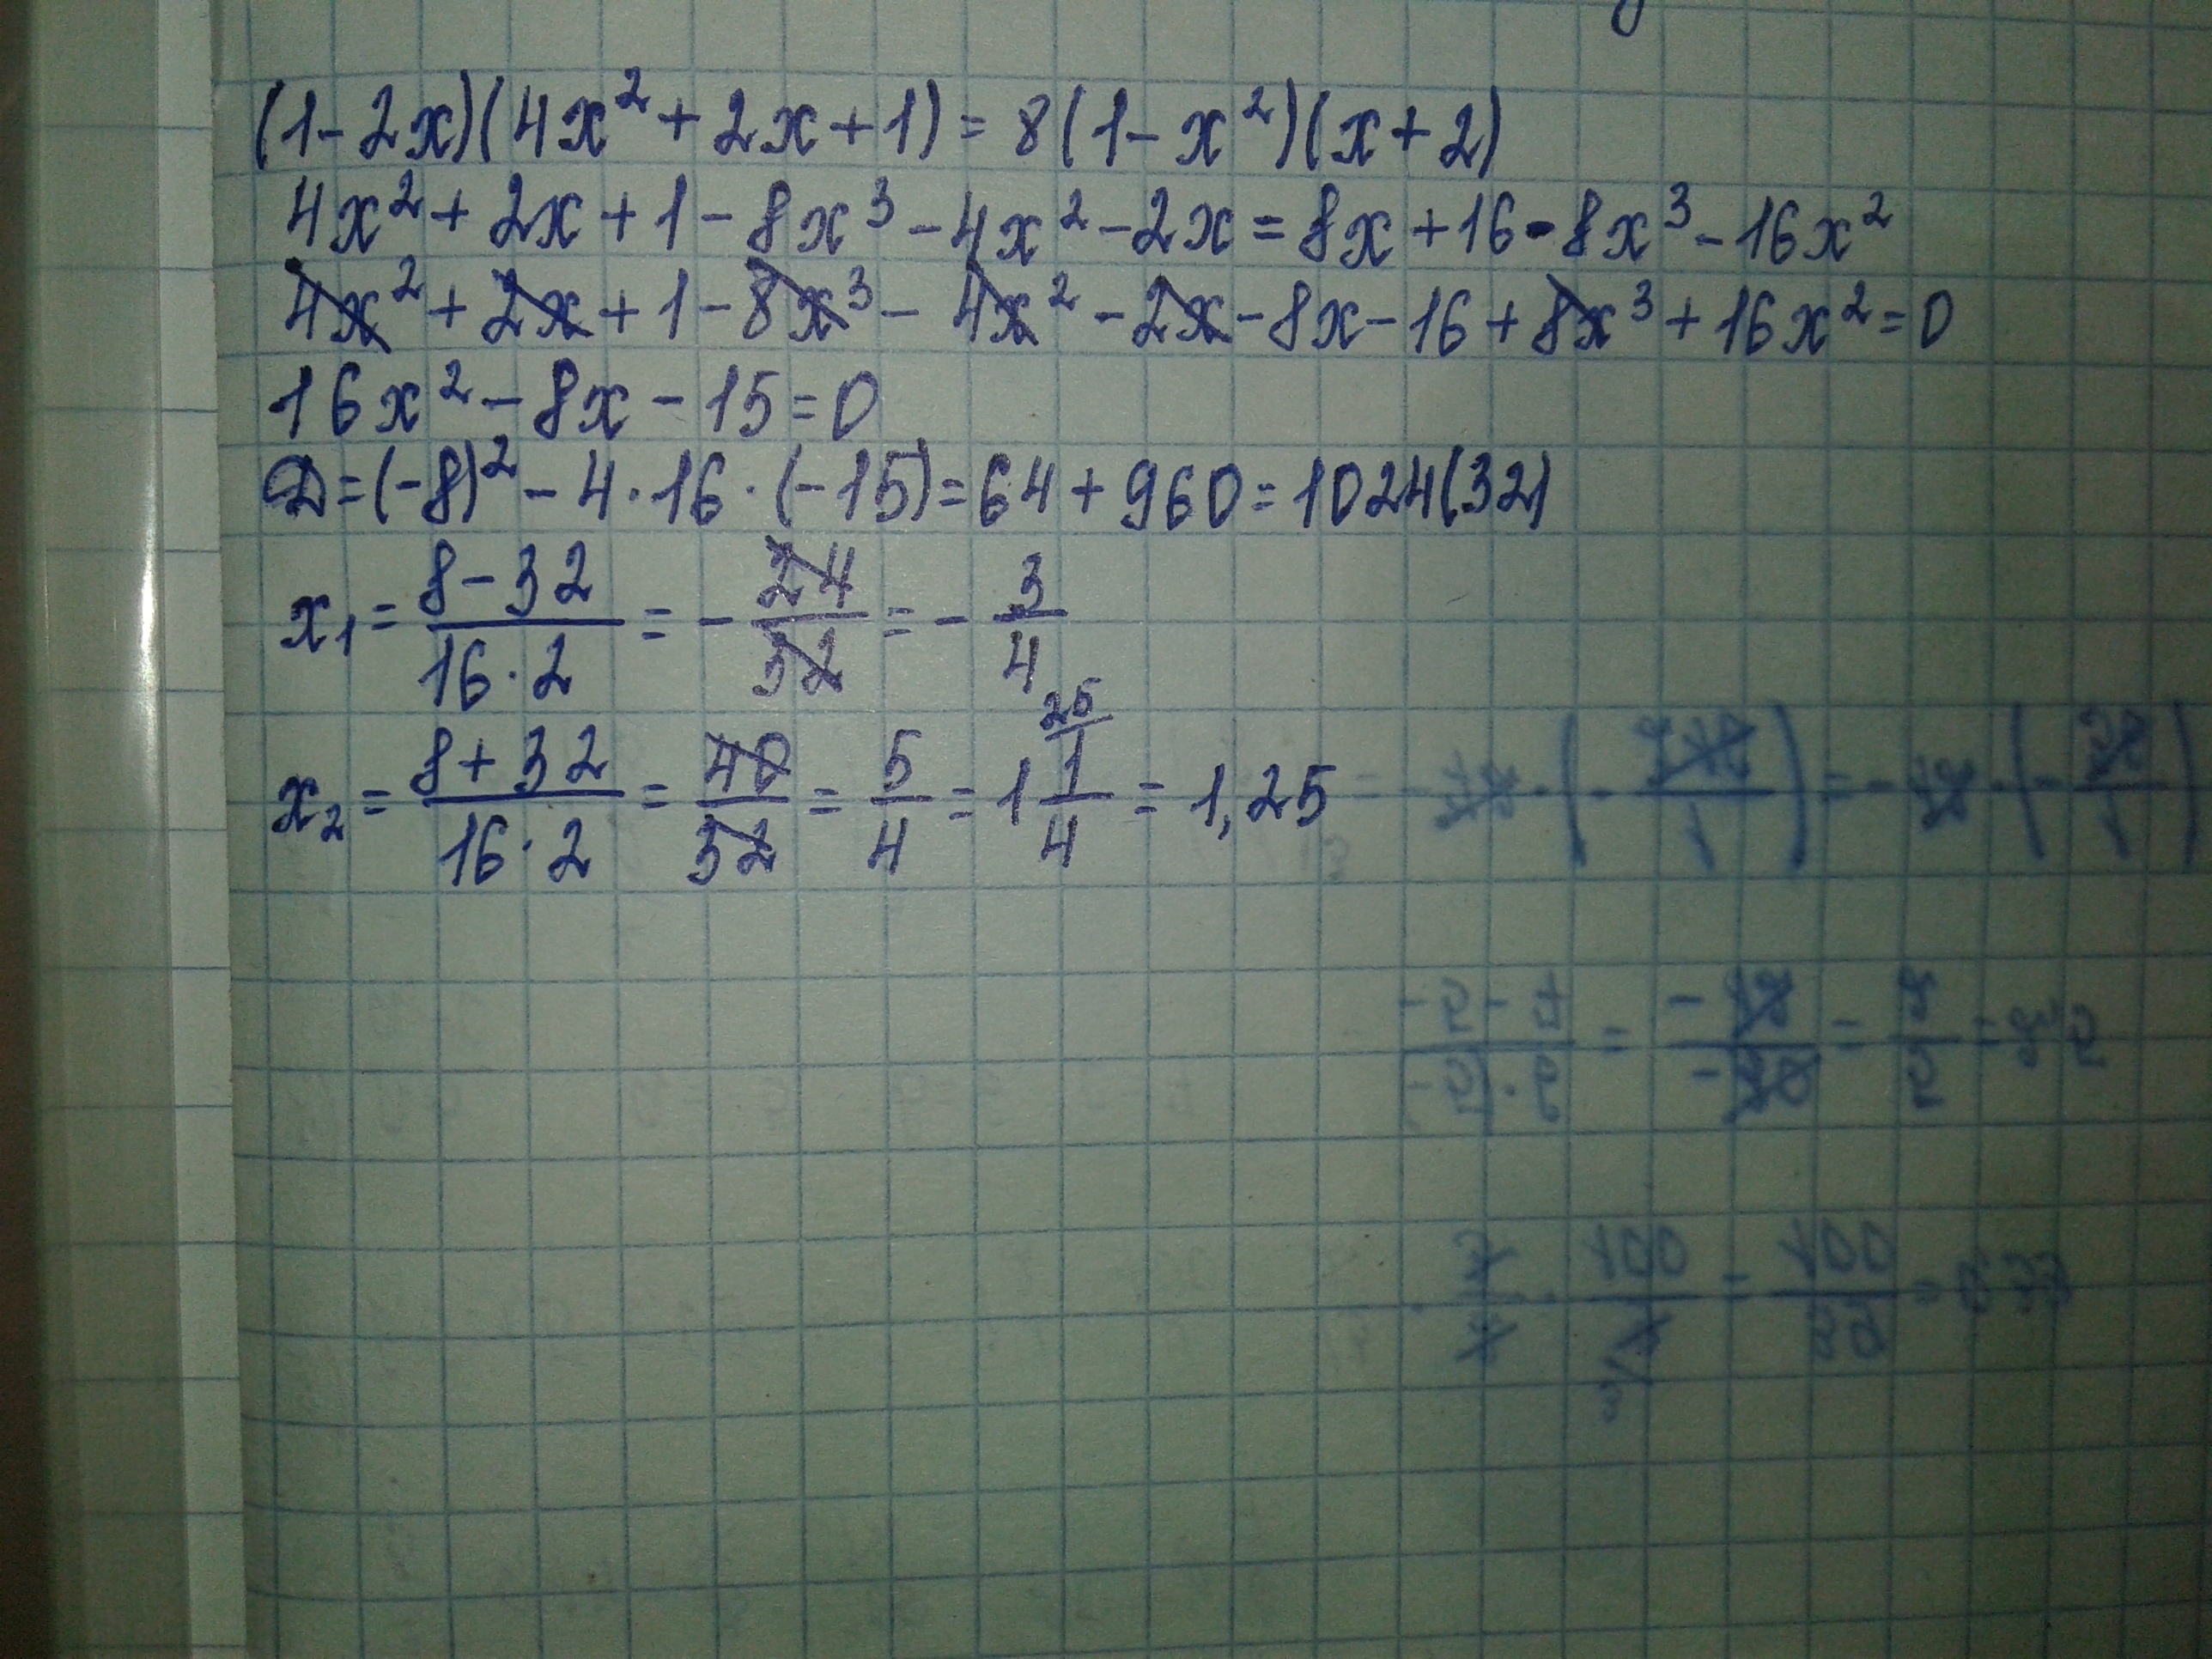 (1-2x)(4x²+2x+1)=8(1-x²)(x+2)
4x²+2x+1-8x³-4x²-2x=8x+16-8x³-16x²
4x²+2x+1-8x³-4x²-2x-8x-16+8x³+16x²=0
16x²-8x-15=0
D=(-8)²-4·16·(-15)=64+960=1024(32)
x₁=(8-32)/(16·2)=-24/32=-3/4
x₂=(8+32)/(16·2)=40/32=5/4=1 25/1/4=1,25